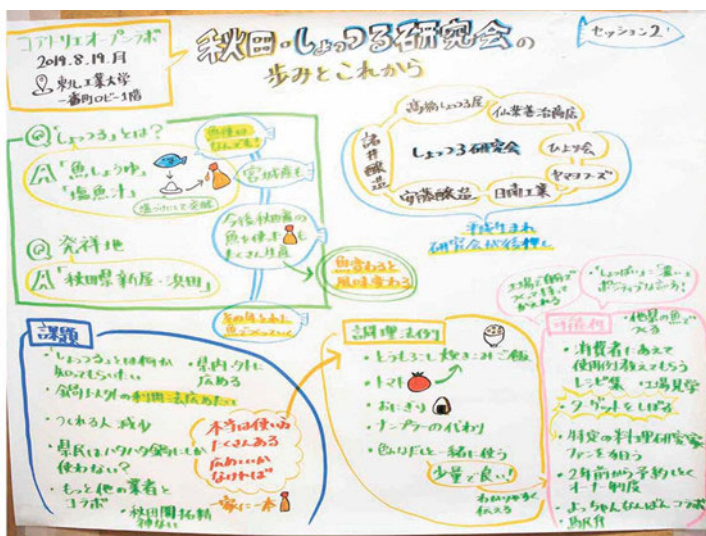 コアトリエオープンラボ
2019.8.19.月
東北工業大学
一番町ロビー1階
秋田・しょっつる研究会の
歩みとこれから
セッション2
Q「しょっつる」とは?
A「魚しょうゆ」
「塩魚汁」
塩づけにして発酵
魚種は
なんでも!
宮城産も
今後秋田産の
魚を使ったも
たくさん生産
その年とれた
魚でつくっていく
Q 発祥地
A「秋田県新屋・浜田」
魚変わると
風味変わる
高橋しょっつる屋
仙葉善治商店
諸井醸造
しょっつる研究会
ひより会
ヤマヨフーズ
安藤醸造
日南工業
平成生まれ
研究会が後押し
課題
・「しょっつる」とは何か
知ってもらいたい
・県内・外に
広める
・鍋以外の利用法広めたい
・つくれる人減少
・県民はハタハタ鍋にしか
使わない?
・もっと他の業者と
コラボ
・秋田開拓精
神ない
本当は使い方
たくさんある
広めていか
なければ
一家に一本
調理法例
・とうもろこし炊きこみご飯
・トマト
・おにぎり
・ナンプラーの代わり
・色んなだしと一緒に使う
少量で良い!
わかりやすく
伝える
工場で自分で
つくって持って
かえれる
・「しょっぱい」=「濃い」
ポジティブなひびき!
可能性
・他県の魚で
つくる
・消費者にあえて
使用例教えてもらう
レシピ集
・工場見学
・ターゲットをしぼる
・特定の料理研究家
ファンを狙う
・2年前から予約しとく
オーナー制度
・よっちゃんなんばんコラボ